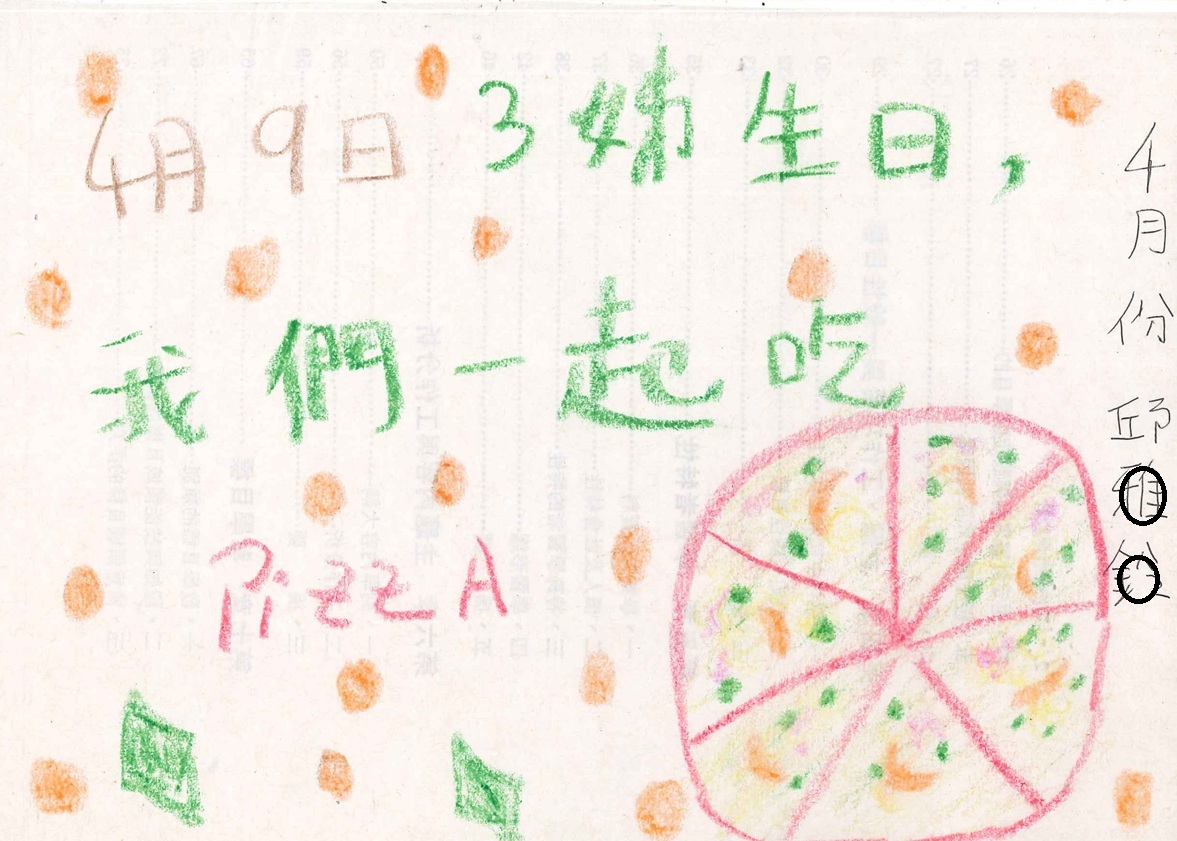 4月9日 3姊生日,
我們一起吃
PizzA
4月份 邱雅